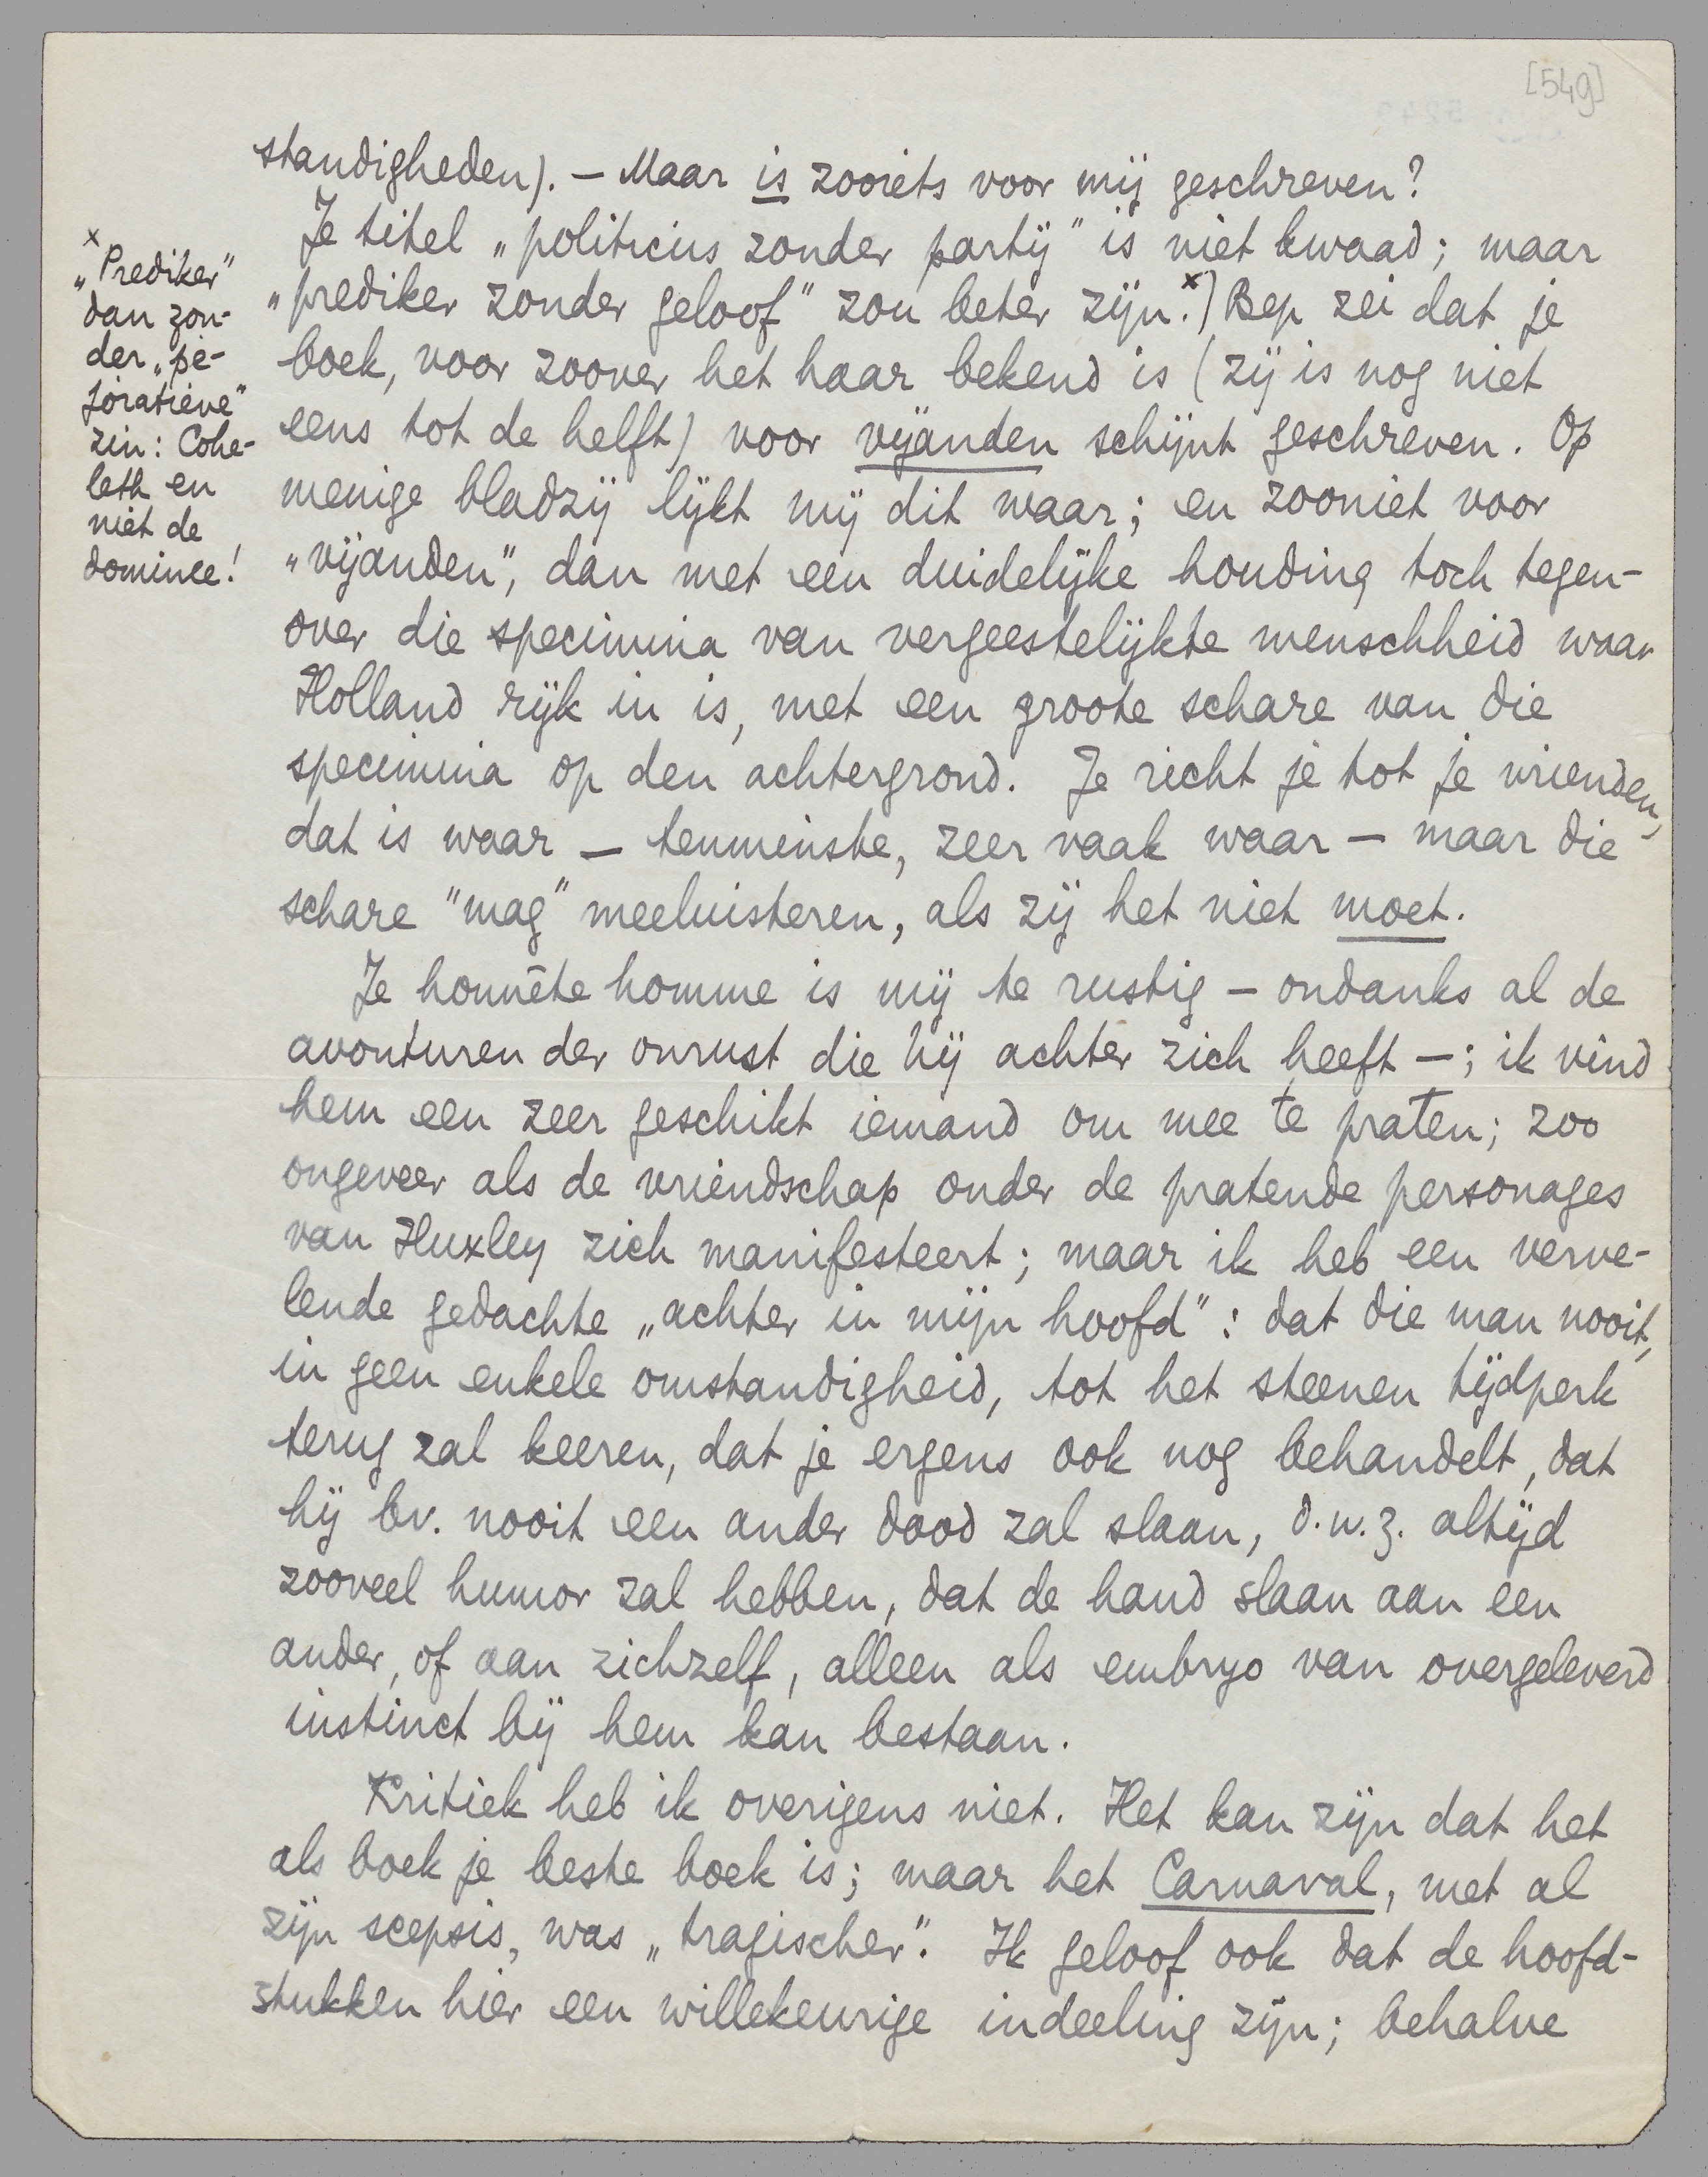 [549]
standigheden). — Maar is zooiets voor mij geschreven?
Je titel „politicus zonder partij" is niet kwaad; maar
„prediker zonder geloof" zou beter zijn.ˣ) Bep zei dat je
boek, voor zoover het haar bekend is (zij is nog niet
eens tot de helft) voor vijanden schijnt geschreven. Op
menige bladzij lijkt mij dit waar; en zooniet voor
„vijanden", dan met een duidelijke houding toch tegen-
over die specimina van vergeestelijkte menschheid waar
Holland rijk in is, met een groote schare van die
specimina op den achtergrond. Je richt je tot je vrienden,
dat is waar — tenminste, zeer vaak waar — maar die
schare "mag" meeluisteren, als zij het niet moet.
Je honnête homme is mij te rustig — ondanks al de
avonturen der onrust die hij achter zich heeft —; ik vind
hem een zeer geschikt iemand om mee te praten; zoo
ongeveer als de vriendschap onder de pratende personages
van Huxley zich manifesteert; maar ik heb een verve-
lende gedachte „achter in mijn hoofd": dat die man nooit,
in geen enkele omstandigheid, tot het steenen tijdperk
terug zal keeren, dat je ergens ook nog behandelt, dat
hij bv. nooit een ander dood zal slaan, d.w.z. altijd
zooveel humor zal hebben, dat de hand slaan aan een
ander, of aan zichzelf, alleen als embryo van overgeleverd
instinct bij hem kan bestaan.
Kritiek heb ik overigens niet. Het kan zijn dat het
als boek je beste boek is; maar het Carnaval, met al
zijn scepsis, was „tragischer". Ik geloof ook dat de hoofd-
stukken hier een willekeurige indeeling zijn; behalve
x
„Prediker"
dan zon-
der „pe-
joratieve"
zin: Cohe-
leth en
niet de
dominee!